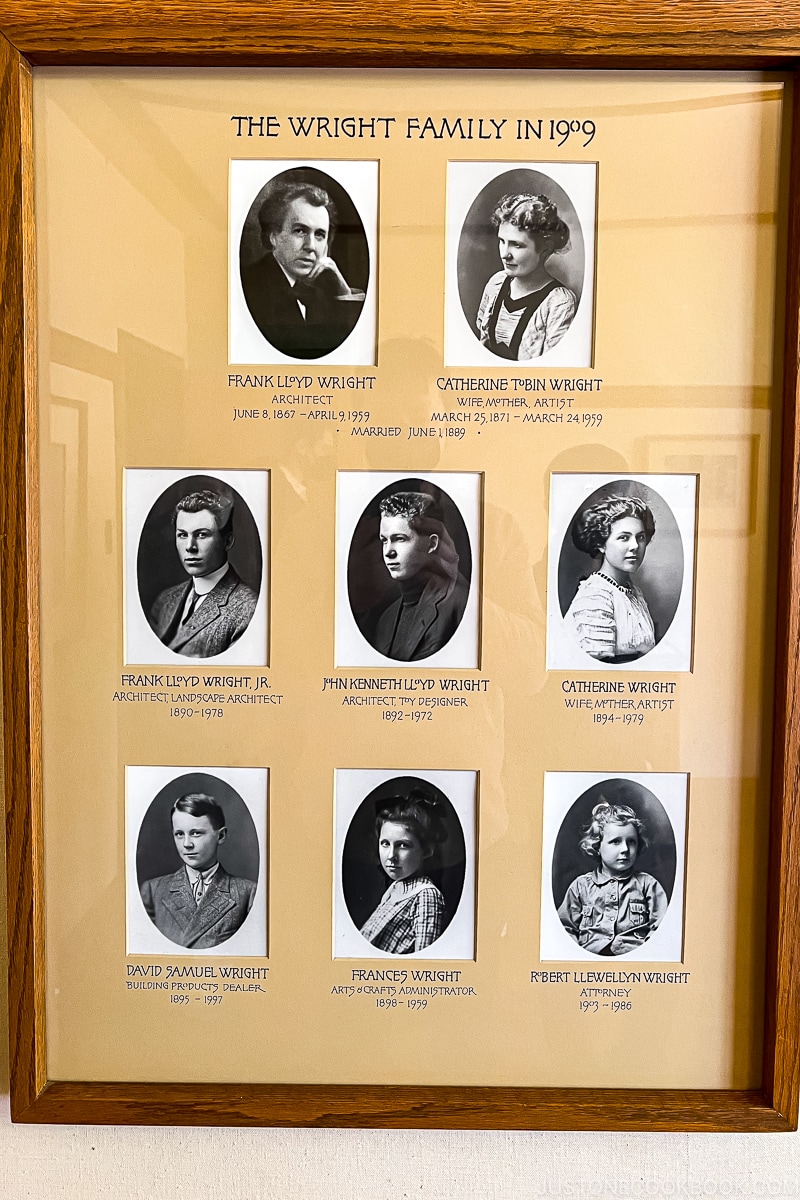 THE WRIGHT FAMILY IN 1909
FRANK LLOYD WRIGHT
ARCHITECT
JUNE 8, 1867 – APRIL 9, 1959
CATHERINE TOBIN WRIGHT
WIFE, MOTHER, ARTIST
MARCH 25, 1871 – MARCH 24, 1959
· MARRIED JUNE 1, 1889 ·
FRANK LLOYD WRIGHT, JR.
ARCHITECT, LANDSCAPE ARCHITECT
1890–1978
JOHN KENNETH LLOYD WRIGHT
ARCHITECT, TOY DESIGNER
1892–1972
CATHERINE WRIGHT
WIFE, MOTHER, ARTIST
1894–1979
DAVID SAMUEL WRIGHT
BUILDING PRODUCTS DEALER
1895 – 1997
FRANCES WRIGHT
ARTS & CRAFTS ADMINISTRATOR
1898–1959
ROBERT LLEWELLYN WRIGHT
ATTORNEY
1903 – 1986
JUSTONECOOKBOOK.COM